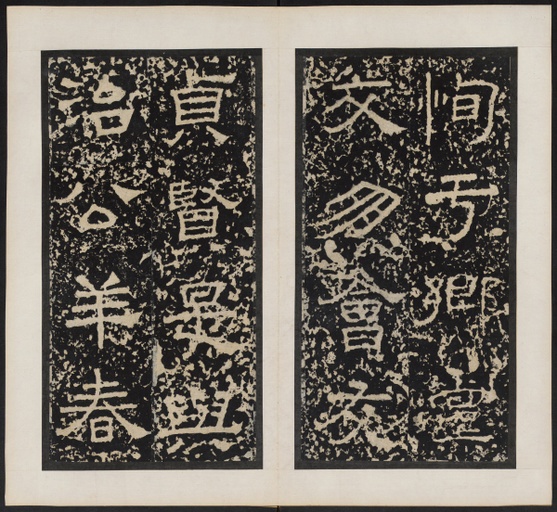 恂于鄉黨
交朋會友
貞賢是與
治公羊春